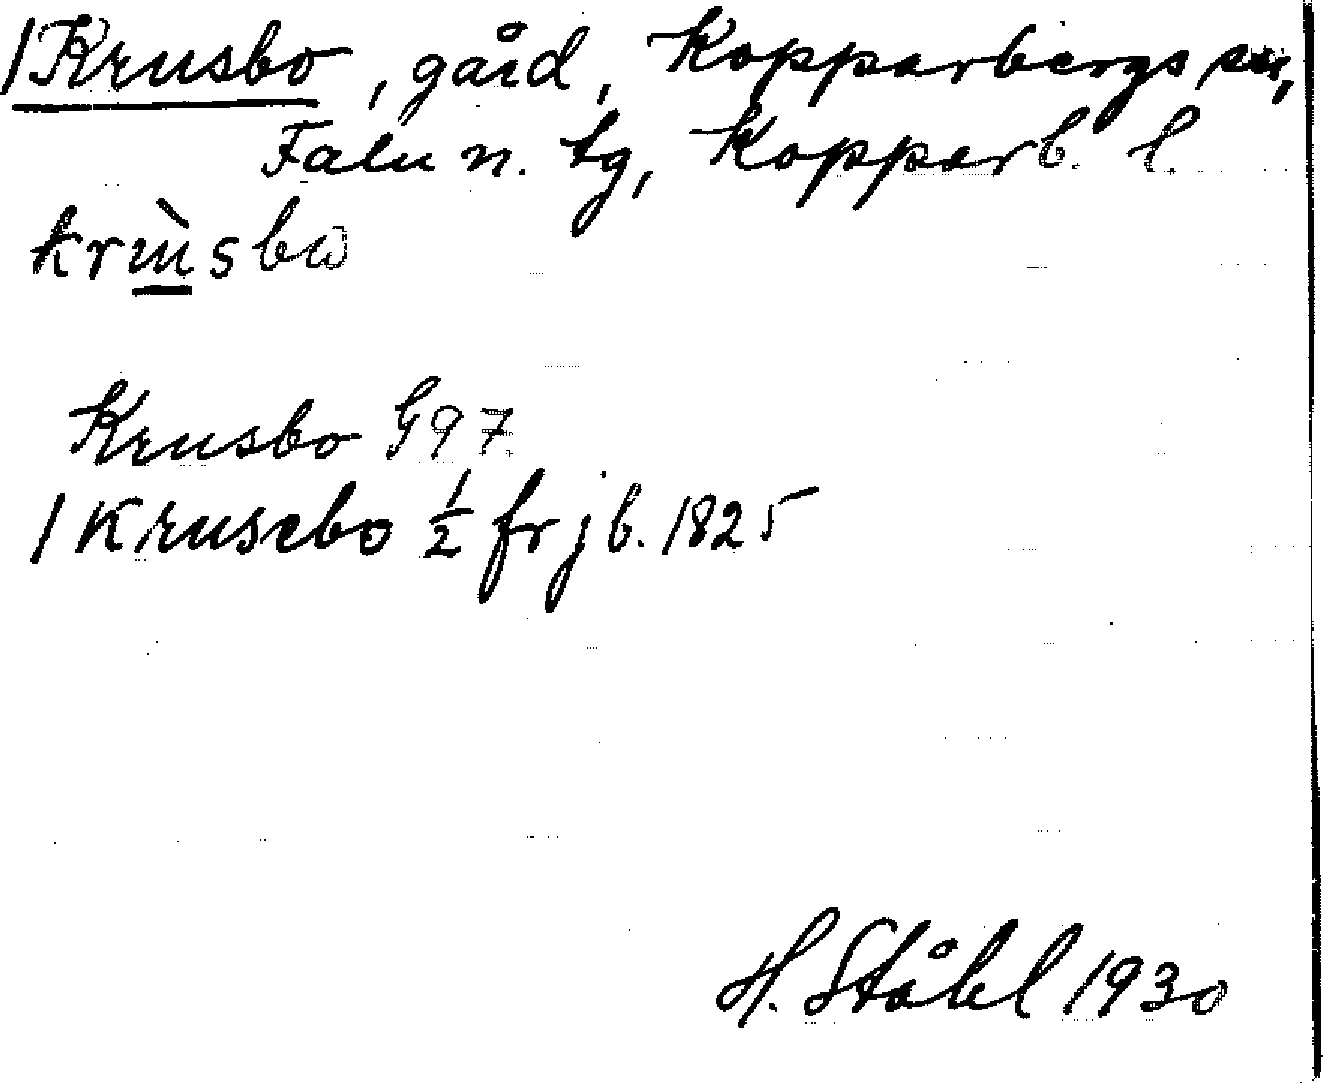 /Krusbo, gård, Kopparbergs sn,
Falu n. tg, Kopparb. l.
krɯ̀sbω
Krusbo G97
/Krusebo ½ fr jb. 1825
H. Ståhl 1930